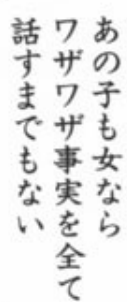 あの子も女なら
ワザワザ事実を全て
話すまでもない